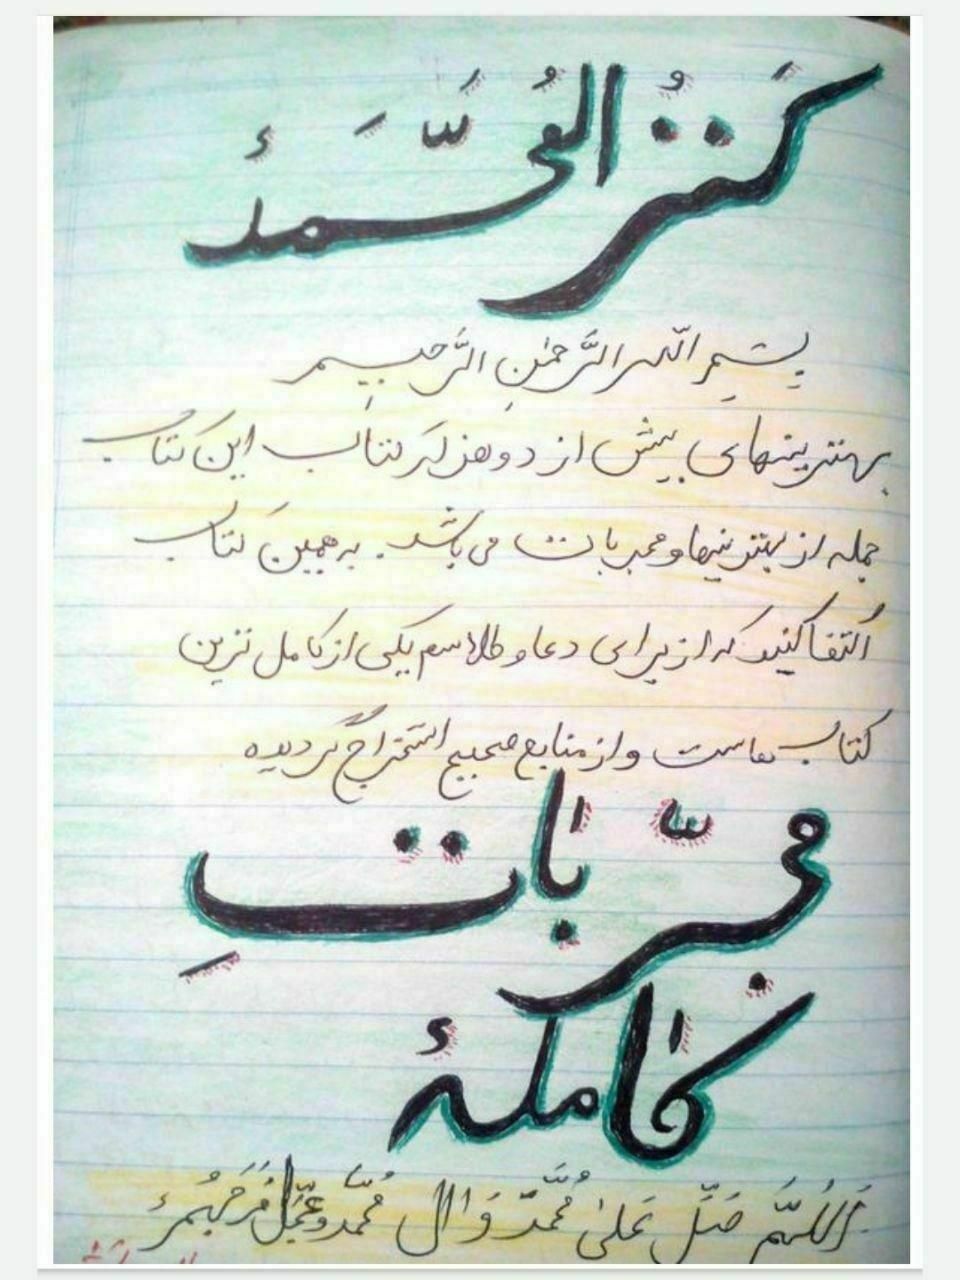 كَنزُ العُمَّدُ
بِسْمِ اللّه الرَّحمٰنِ الرَّحیم
بهترینهای بیش از دو هزار کتاب این کتاب
جمله از بهترینها و مجربات می باشد. به همین کتاب
اکتفا کنید که از برای دعا و طلاسم یکی از کامل ترین
کتاب هاست و از منابع صحیح استخراج گردیده
مجرّباتِ
کامله
اَللّهُمَّ صَلِّ عَلیٰ مُحَمَّدٍ وَ آل مُحَمَّد وَعَجِّل فَرَجَهُم